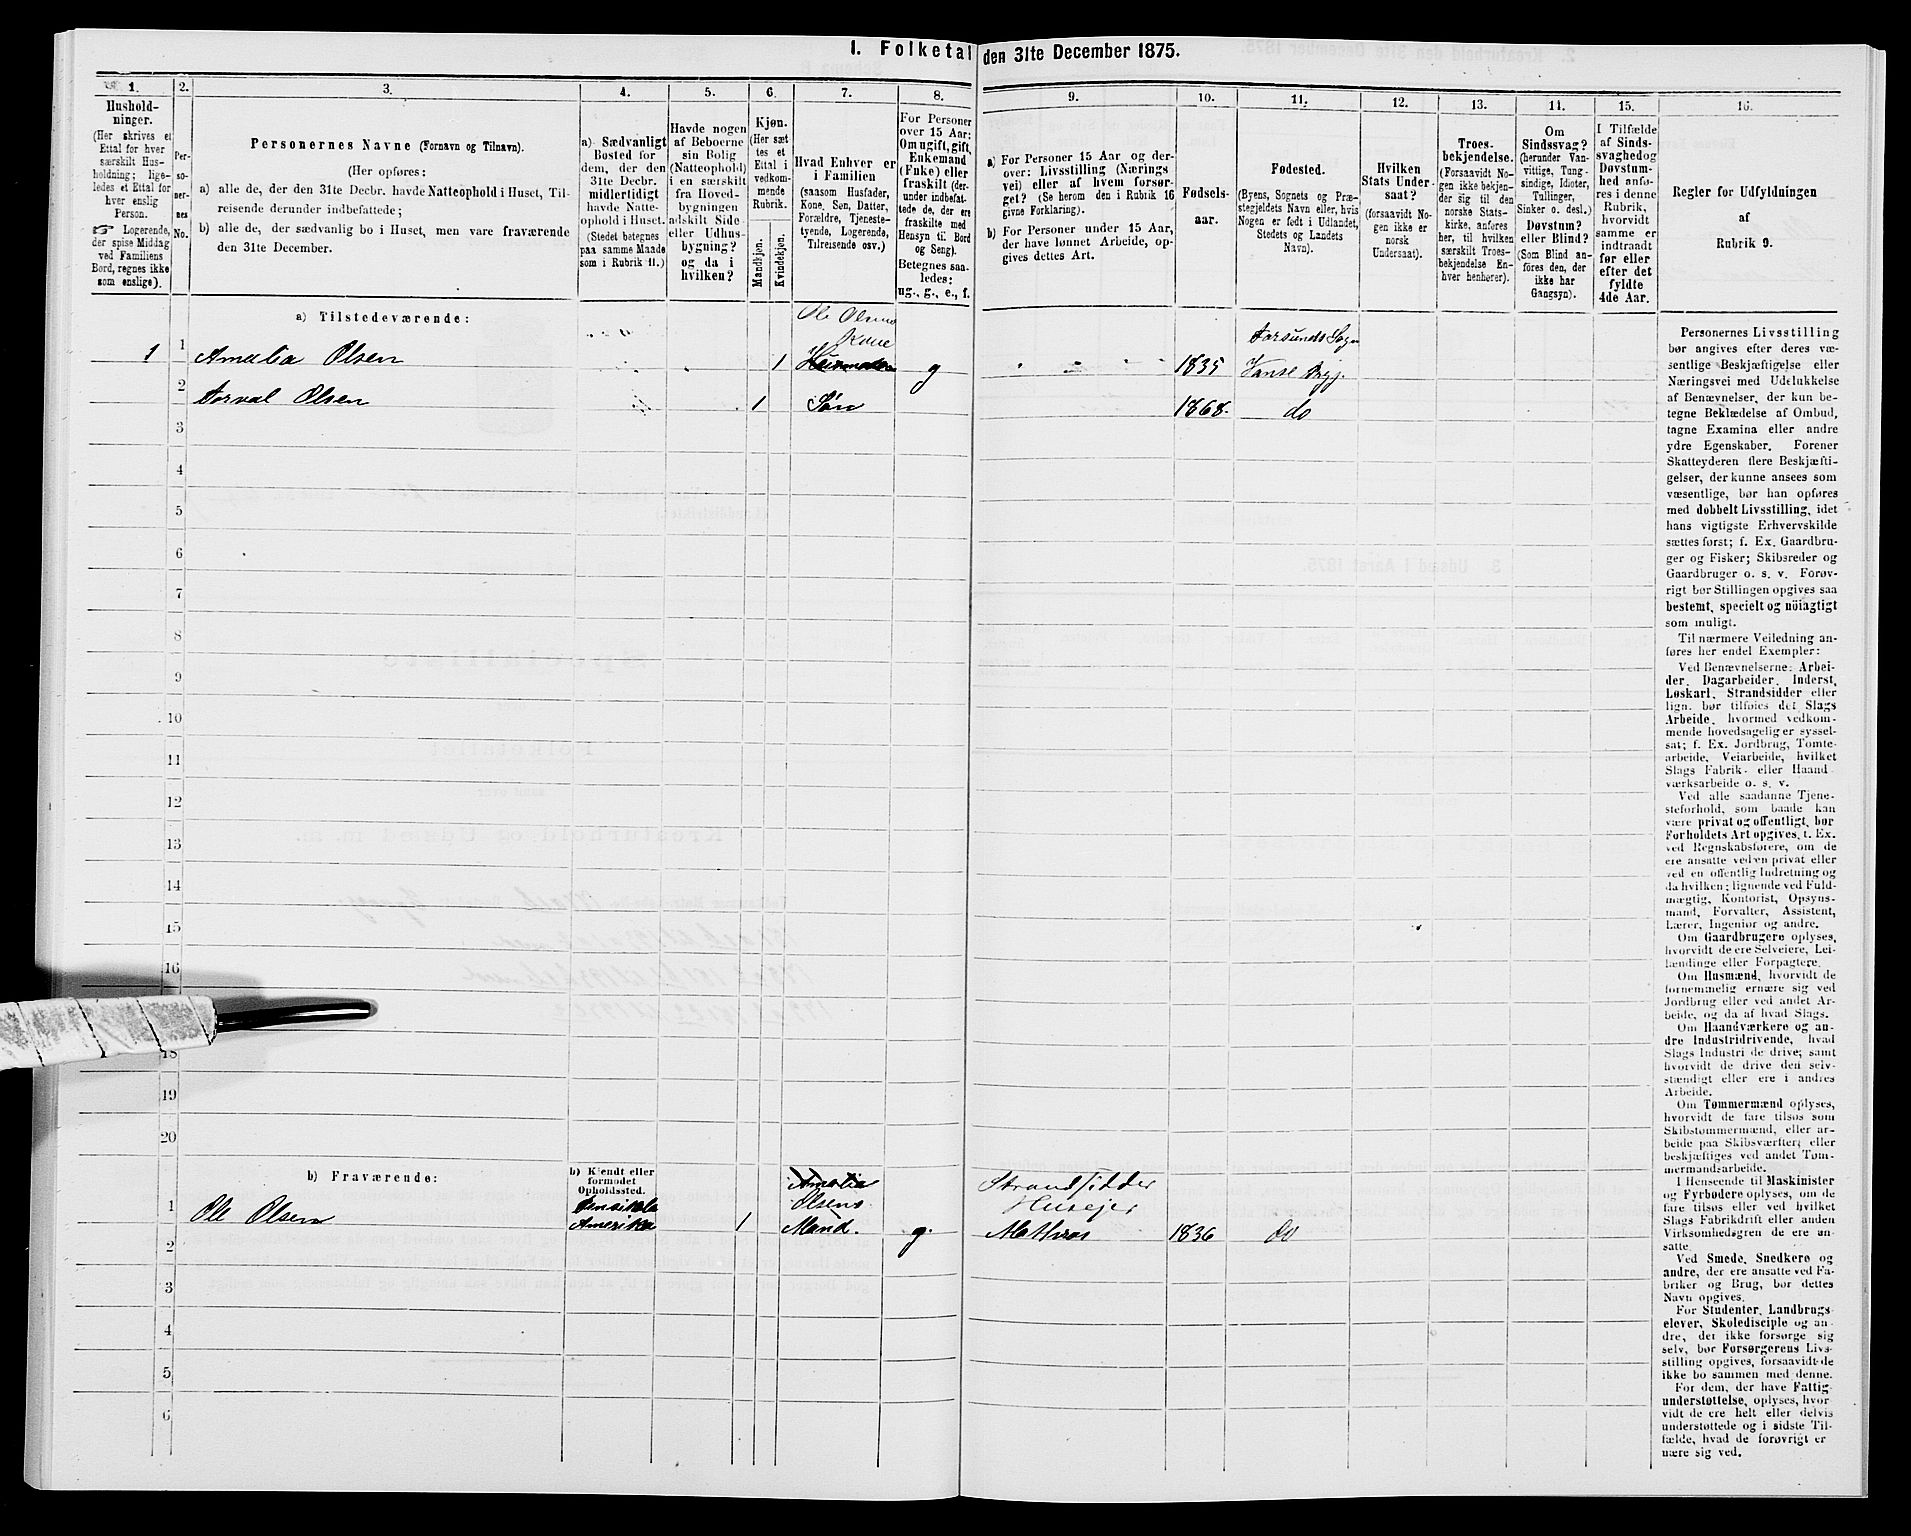 1. Folketal den 31te December 1875.
1.
2.
3.
4.
5.
6.
7.
8.
9.
10.
11.
12.
13.
14.
15.
16.
Hushold-
ninger.
(Her skrives et
Ettal for hver
særskilt Hus-
holdning; lige-
ledes et Ettal for
hver enslig
Person.
☞ Logerende,
der spise Middag
ved Familiens
Bord, regnes ikke
som enslige).
Per-
so-
ner-
nes
No.
Personernes Navne (Fornavn og Tilnavn).
(Her opføres:
a) alle de, der den 31te Decbr. havde Natteophold i Huset, Til-
reisende derunder indbefattede;
b) alle de, der sædvanlig bo i Huset, men vare fraværende
den 31te December.
a) Sædvanligt
Bosted for
dem, der den
31te Decbr.
midlertidigt
havde Natte-
ophold i Huset.
(Stedet betegnes
paa samme Maade
som i Rubrik 11.)
Havde nogen
af Beboerne
sin Bolig
(Natteophold)
i en særskilt
fra Hoved-
bygningen
adskilt Side-
eller Udhus-
bygning?
og da i
hvilken?
Kjøn.
(Her sæt-
tes et
Ettal i
vedkom-
mende
Rubrik.
Mandkjøn.
Kvindekjøn.
Hvad Enhver er
i Familien
(saasom Husfader,
Kone, Søn, Datter,
Forældre, Tjeneste-
tyende, Logerende,
Tilreisende osv.)
For Personer
over 15 Aar:
Om ugift, gift,
Enkemand
(Enke) eller
fraskilt (der-
under indbefat-
tede de, der ere
fraskilte med
Hensyn til Bord
og Seng).
Betegnes saa-
ledes:
ug., g., e., f.
a) For Personer 15 Aar og der-
over: Livsstilling (Nærings
vei) eller af hvem forsør-
get? (Se herom den i Rubrik 16
givne Forklaring).
b) For Personer under 15 Aar,
der have lønnet Arbeide, op-
gives dettes Art.
Fødsels-
aar.
Fødested.
(Byens, Sognets og Præ-
stegjeldets Navn eller, hvis
Nogen er født i Udlandet,
Stedets og Landets
Navn).
Hvilken
Stats Under-
saat?
(forsaavidt No-
gen ikke er
norsk
Undersaat).
Troes-
bekjendelse.
(Forsaavidt No-
gen ikke bekjen-
der sig til den
norske Stats-
kirke, anføres
her, til hvilken
særskilt Troes-
bekjendelse En-
hver henhører).
Om
Sindssvag?
(herunder Van-
vittige, Tung-
sindige, Idioter,
Tullinger,
Sinker o. desl.)
Døvstum?
eller Blind?
(Som Blind an-
føres den, der
ikke har
Gangsyn).
I Tilfælde
af Sinds-
svaghed og
Døvstum-
hed anfø-
res i denne
Rubrik,
hvorvidt
samme er
indtraadt
før eller
efter det
fyldte
4de Aar.
Regler for Udfyldningen
af
Rubrik 9.
a) Tilstedeværende:
Ole Olsens
Kone
Farsunds Sogn
1 1 Amalia Olsen 1 Husmoder g 1835 Vanse Prgj.
2 Torval Olsen 1 Søn 1868. do
3
4
5
6
7
8
9
10
11
12
13
14
15
16
18
19
20
b) Fraværende:
b) Kjendt eller
formodet
Opholdssted.
Amalia
Strandsidder
Olsens
Husejer
1 Ole Olsen Amerika 1 Mand. g. Mathros 1836 do
2
3
4
5
6
Personernes Livsstilling
bør angives efter deres væ-
sentlige Beskjæftigelse eller
Næringsvei med Udelukkelse
af Benævnelser, der kun be-
tegne Beklædelse af Ombud,
tagne Examina eller andre
ydre Egenskaber. Forener
Skatteyderen flere Beskjæfti-
gelser, der kunne ansees som
væsentlige, bør han opføres
med dobbelt Livsstilling, idet
hans vigtigste Erhvervskilde
sættes først; f. Ex. Gaardbru-
ger og Fisker; Skibsreder og
Gaardbruger o. s. v. Forøv-
rigt bør Stillingen opgives saa
bestemt, specielt og nöiagtigt
som muligt.
Til nærmere Veiledning an-
føres her endel Exempler:
Ved Benævnelserne: Arbei-
der, Dagarbeider, Inderst,
Løskarl, Strandsidder eller
lign. bør tilføies det Slags
Arbeide, hvormed vedkom-
mende hovedsagelig er syssel-
sat; f. Ex. Jordbrug, Tomte-
arbeide, Veiarbeide, hvilket
Slags Fabrik- eller Haand-
værksarbeide o. s. v.
Ved alle saadanne Tjene-
steforhold, som baade kan
være privat og offentligt, bør
Forholdets Art opgives, t. Ex.
ved Regnskabsførere, om de
ere ansatte ved en privat eller
ved en offentlig Indretning og
da hvilken; lignende ved Fuld-
mægtig, Kontorist, Opsyns-
mand, Forvalter, Assistent,
Lærer, Ingeniør og andre.
Om Gaardbrugere oplyses,
hvorvidt de ere Selveiere, Lei-
lændinge eller Forpagtere.
Om Husmænd, hvorvidt de
fornemmelig ernære sig ved
Jordbrug eller ved andet Ar-
beide, og da af hvad Slags.
Om Haandværkere og an-
dre Industridrivende, hvad
Slags Industri de drive; samt
hvorvidt de drive den selv-
stændigt eller ere i andres
Arbeide.
Om Tømmermænd oplyses,
hvorvidt de fare tilsøs som
Skibstømmermænd, eller ar-
beide paa Skibsværfter; eller
beskjæftiges ved andet Tøm-
mermandsarbeide.
I Henseende til Maskinister
og Fyrbødere oplyses, om de
fare tilsøs eller ved hvilket
Slags Fabrikdrift eller anden
Virksomhedsgren de ere an-
satte.
Ved Smede, Snedkere og
andre, der ere ansatte ved Fa-
briker og Brug, bør dettes
Navn opgives.
For Studenter, Landbrugs-
elever, Skoledisciple og an-
dre, der ikke forsørge sig
selv, bør Forsørgerens Livs-
stilling opgives, forsaavidt de
ikke bo sammen med denne.
For dem, der have Fattig-
understøttelse, oplyses, hvor-
vidt de ere helt eller delvis
understøttede og i sidste Til-
fælde, hvad de forøvrigt er-
nære sig ved.